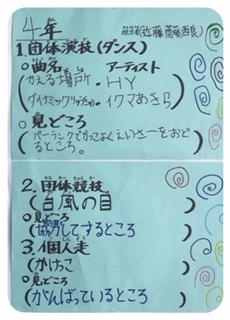 4年 担当者(近藤 西良)
1.団体演技(ダンス)
○曲名 アーティスト
(かえる場所・HY
ダイナミック琉球・イクマあきら)
○見どころ
(パーランクでかっこよくえいさーをおどるところ。)
2.団体競技
(台風の目)
○見どころ
(協力してするところ)
3.個人走
(かけっこ)
○見どころ
(がんばっているところ)